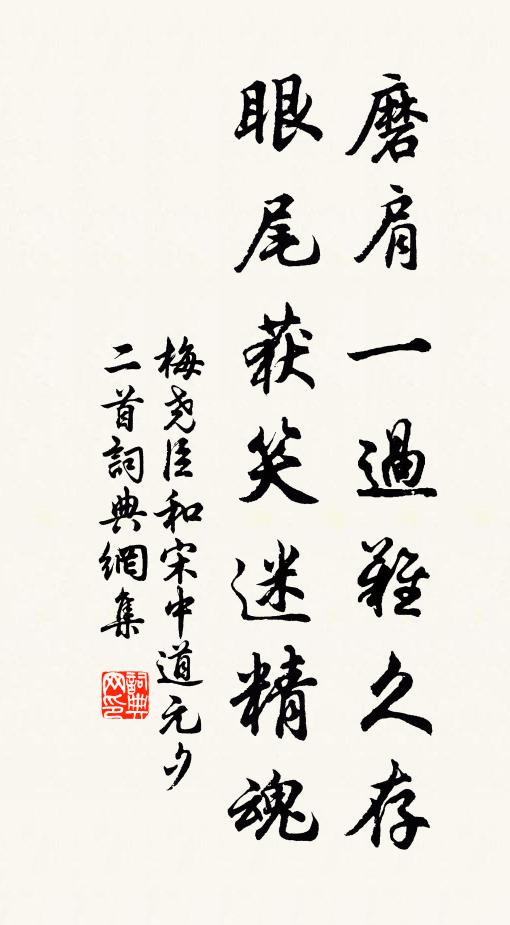 磨肩一過難久存
眼尾获笑迷精魂
梅尧臣和宋中道元夕
二首詞典網集
詞典网印